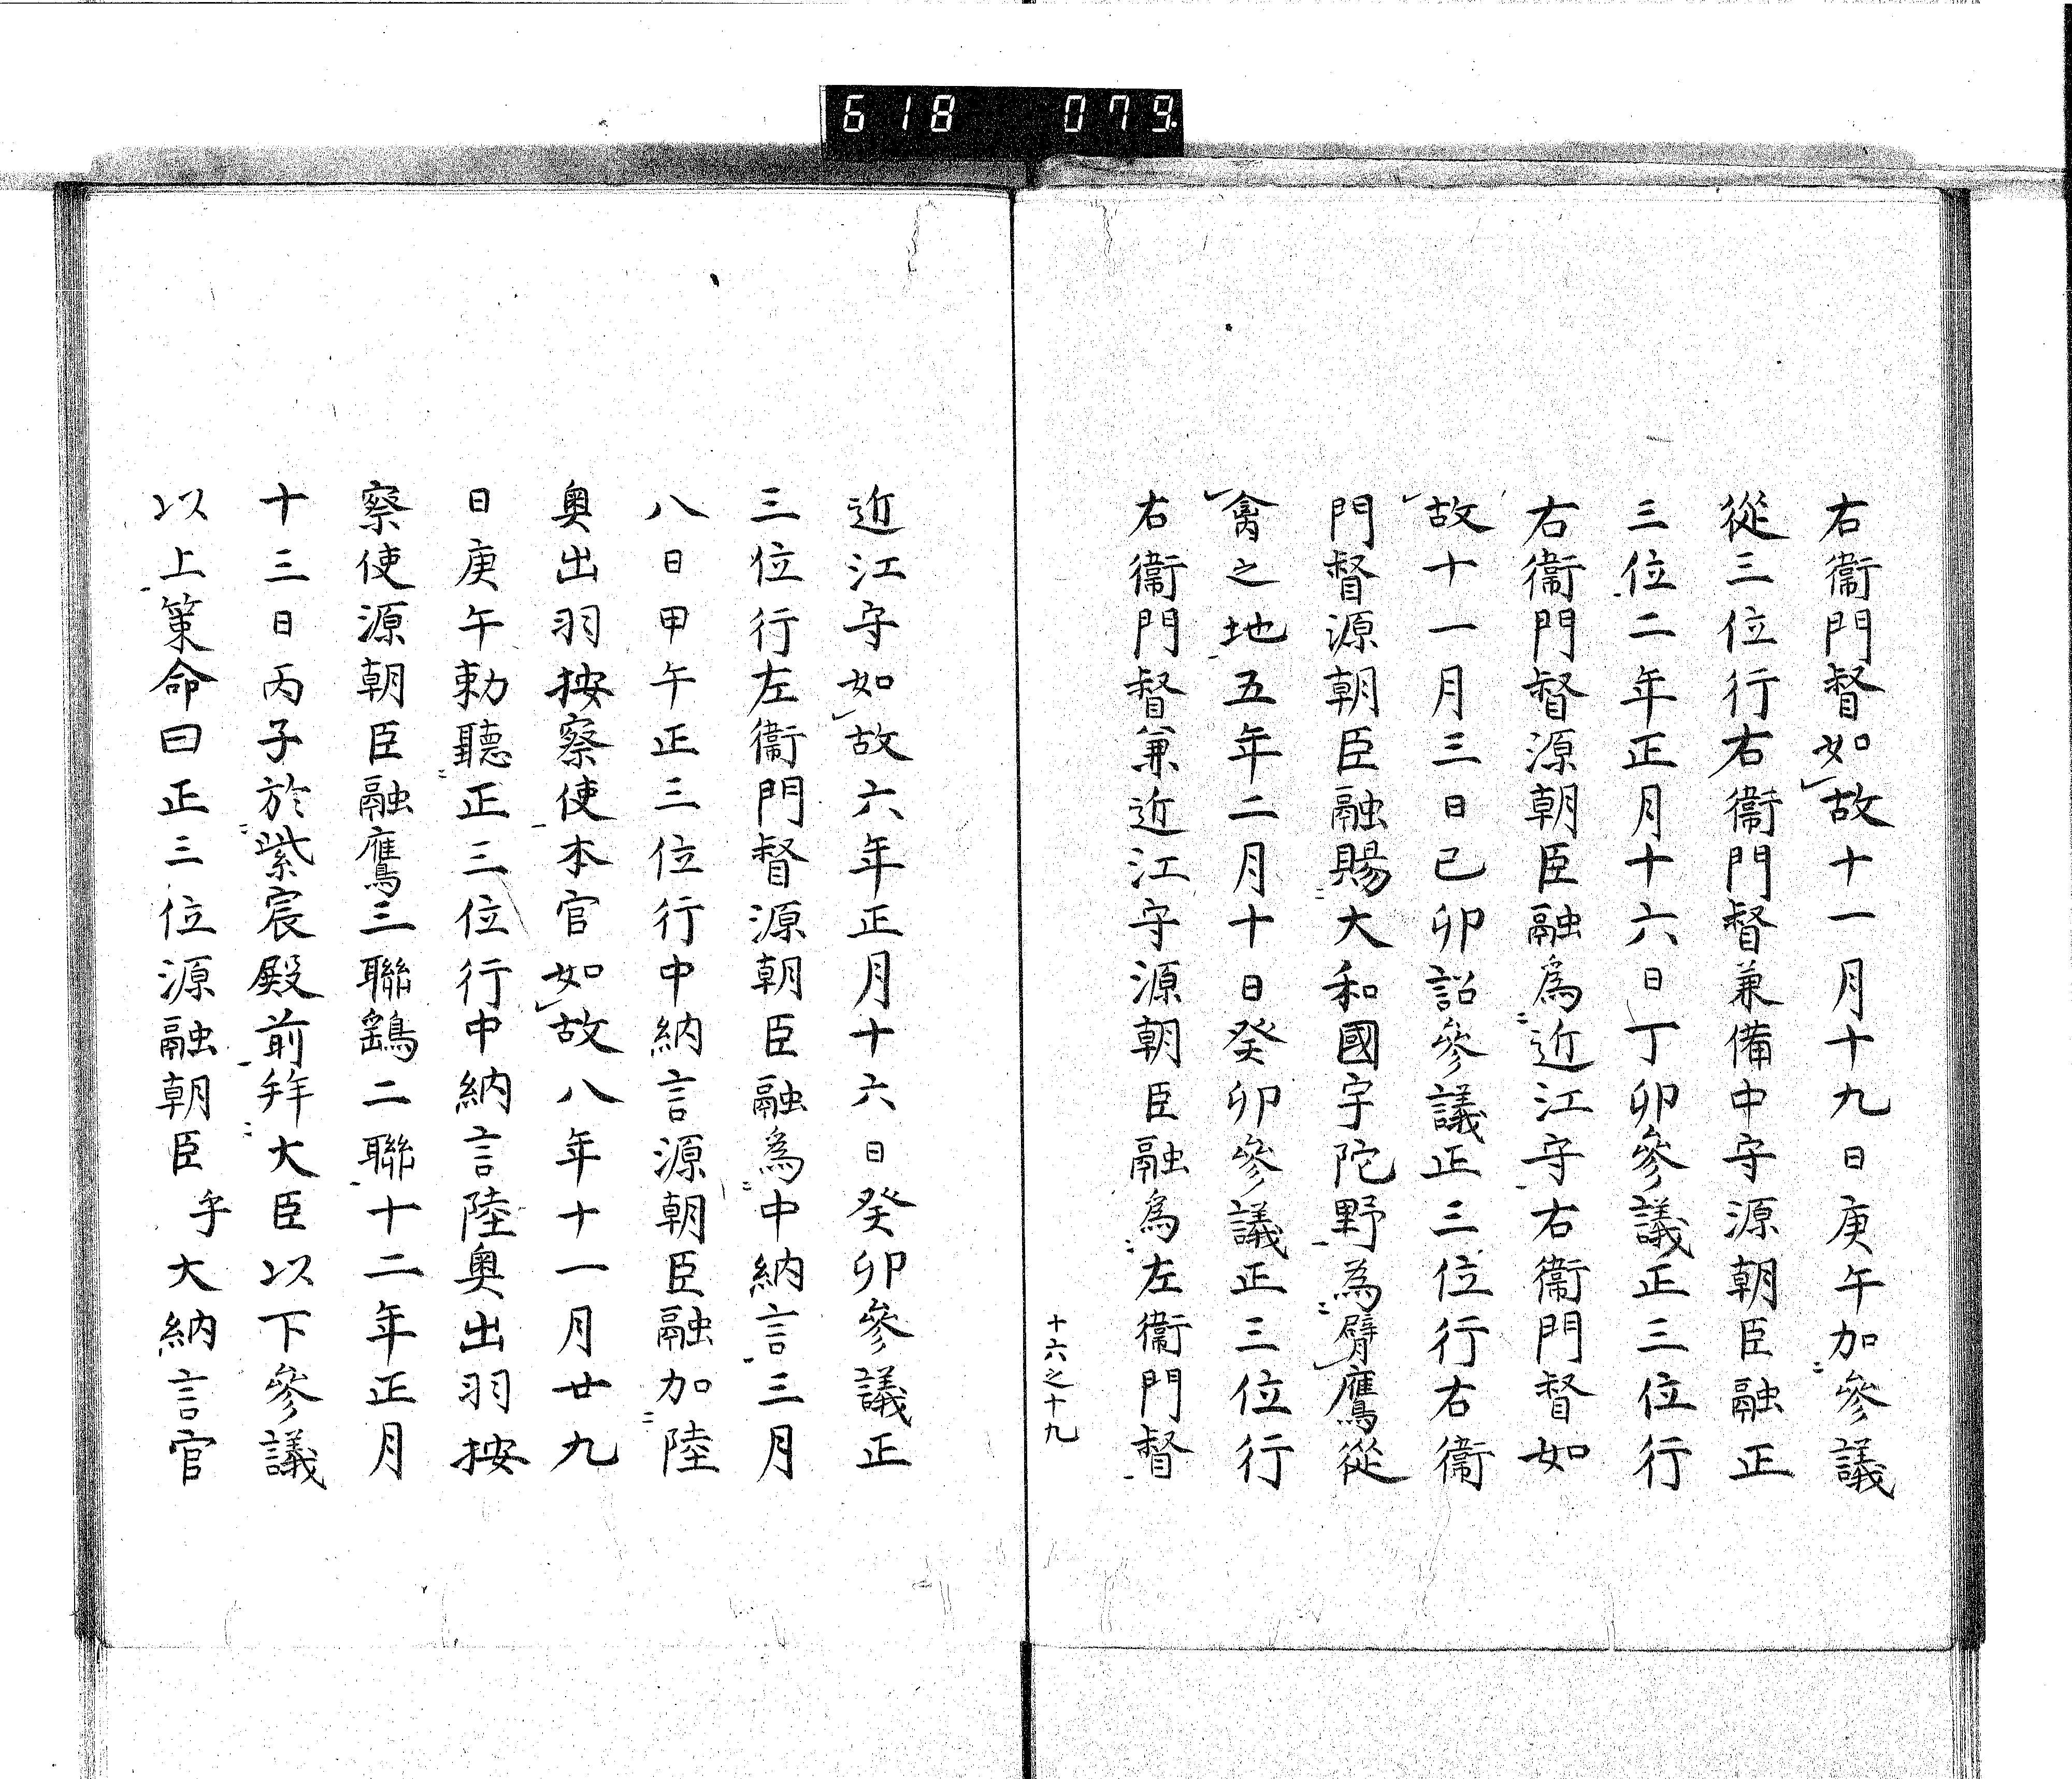 618 079
右衞門督如故十一月十九日庚午加參議
從三位行右衞門督兼備中守源朝臣融正
三位二年正月十六日丁卯參議正三位行
右衞門督源朝臣融爲近江守右衞門督如
故十一月三日己卯詔參議正三位行右衞
門督源朝臣融賜大和國宇陀野為臂鷹從
禽之地五年二月十日癸卯參議正三位行
右衞門督兼近江守源朝臣融爲左衞門督
十六之十九
近江守如故六年正月十六日癸卯參議正
三位行左衞門督源朝臣融爲中納言三月
八日甲午正三位行中納言源朝臣融加陸
奥出羽按察使本官如故八年十一月廿九
日庚午勅聽正三位行中納言陸奥出羽按
察使源朝臣融鷹三聯鷂二聯十二年正月
十三日丙子於紫宸殿前拜大臣以下參議
以上策命曰正三位源融朝臣乎大納言官